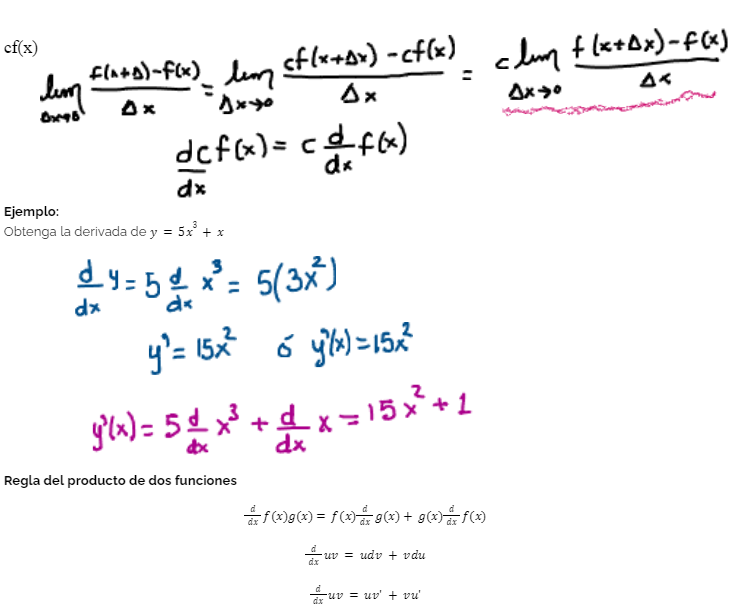 cf(x)
lim Δx→0 f(x+Δ)-f(x) / Δx = lim Δx→0 cf(x+Δx) - cf(x) / Δx = c lim Δx→0 f(x+Δx)-f(x) / Δx
dcf(x)/dx = c d/dx f(x)
Ejemplo:
Obtenga la derivada de y = 5x³ + x
d/dx y = 5 d/dx x³ = 5(3x²)
y' = 15x² ó y'(x) = 15x²
y'(x) = 5 d/dx x³ + d/dx x = 15x² + 1
Regla del producto de dos funciones
d/dx f(x)g(x) = f(x) d/dx g(x) + g(x) d/dx f(x)
d/dx uv = udv + vdu
d/dx uv = uv' + vu'